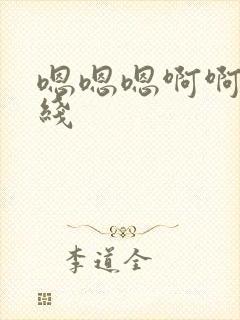 嗯嗯嗯啊啊
线
李道全